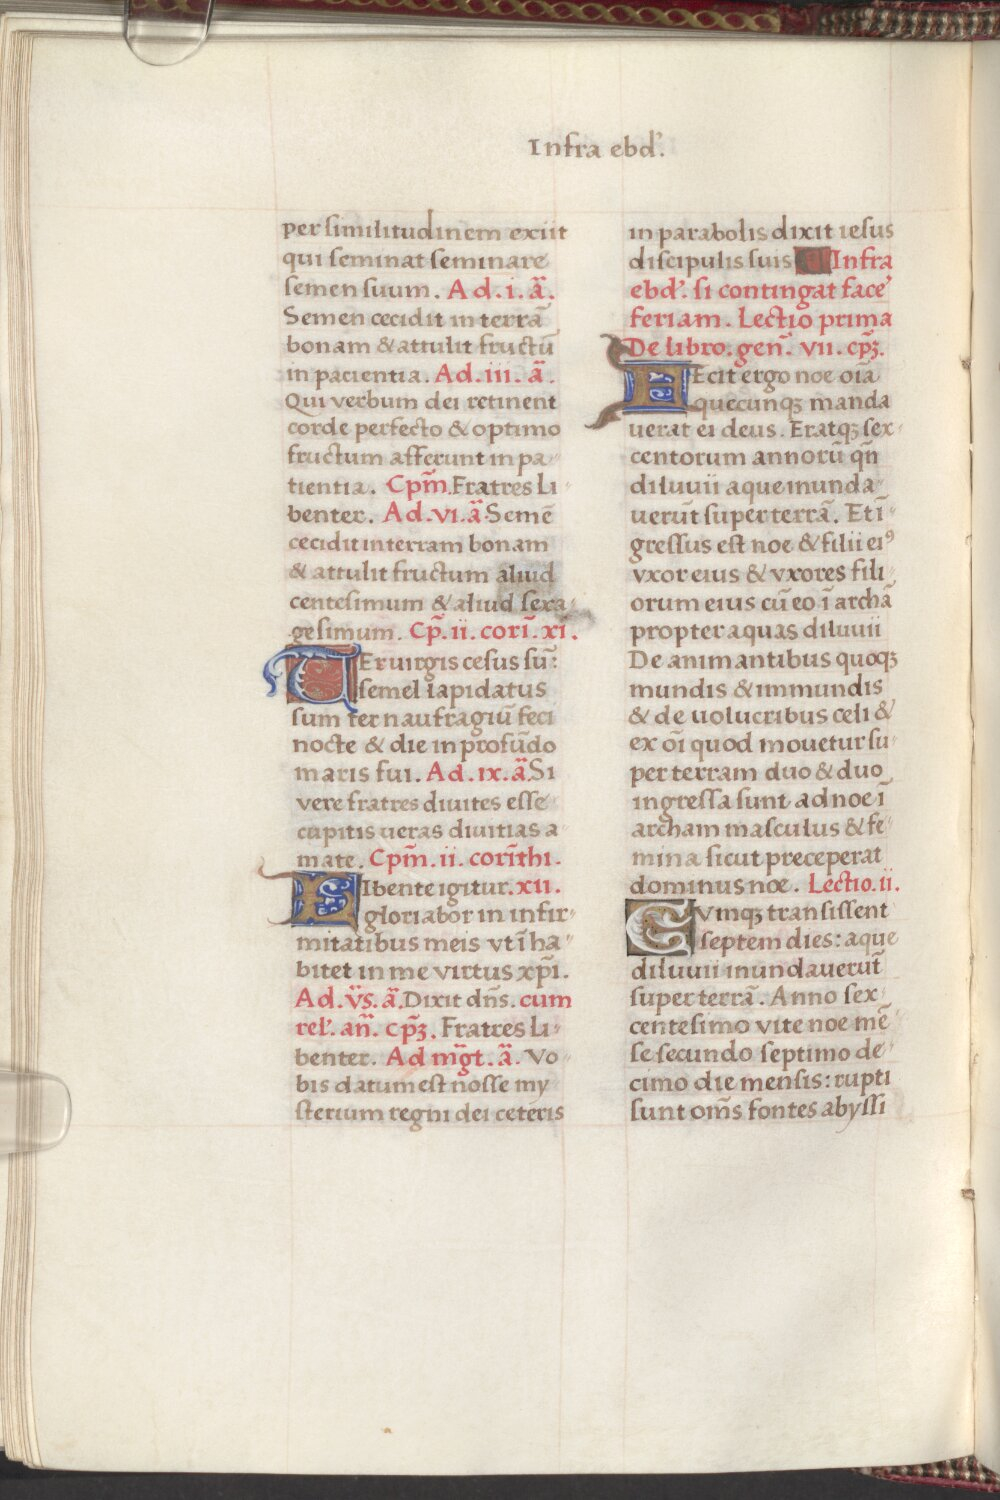 Infra ebd'.
per similitudinem exiit
qui seminat seminare
semen suum. Ad .i. ā.
Semen cecidit in terrā
bonam & attulit fructū
in pacientia. Ad .iii. ā.
Qui verbum dei retinent
corde perfecto & optimo
fructum afferunt in pa-
tientia. Cpm̄. Fratres Li-
benter. Ad .vi. ā. Semē
cecidit in terram bonam
& attulit fructum aliud
centesimum & aliud sexa-
gesimum. Cp̄. ii. cori̅. xi.
TEr uirgis cesus su̅:
semel lapidatus
sum ter naufragiū feci
nocte & die in profūdo
maris fui. Ad .ix. ā. Si
vere fratres diuites esse
cupitis ueras diuitias a-
mate. Cpm̄. ii. cori̅thi.
LIbente igitur. xii.
gloriabor in infir-
mitatibus meis vt i̅ha-
bitet in me virtus xp̄i.
Ad .vs̄. ā. Dixit dn̄s. cum
rel'. an̄. cpꝫ. Fratres Li-
benter. Ad mḡt. ā. Vo-
bis datum est nosse my
sterium regni dei ceteris
in parabolis dixit iesus
discipulis suis Infra
ebd'. si contingat face'
feriam. Lectio prima
De libro. gen̄. vii. cpꝫ.
FEcit ergo noe oi̅a
quecunqꝫ manda
uerat ei deus. Eratqꝫ sex-
centorum annorū qn̄
diluuii aque inunda-
uerūt super terrā. Et i̅-
gressus est noe & filii eiꝰ
vxor eius & vxores fili-
orum eius cū eo i̅ archā
propter aquas diluuii
De animantibus quoqꝫ
mundis & immundis
& de uolucribus celi &
ex oi̅ quod mouetur su-
per terram duo & duo
ingressa sunt ad noe i̅
archam masculus & fe-
mina sicut preceperat
dominus noe. Lectio. ii.
CVmqꝫ transissent
septem dies: aque
diluuii inundauerūt
super terrā. Anno sex-
centesimo vite noe mē-
se secundo septimo de-
cimo die mensis: rupti
sunt om̄s fontes abyssi